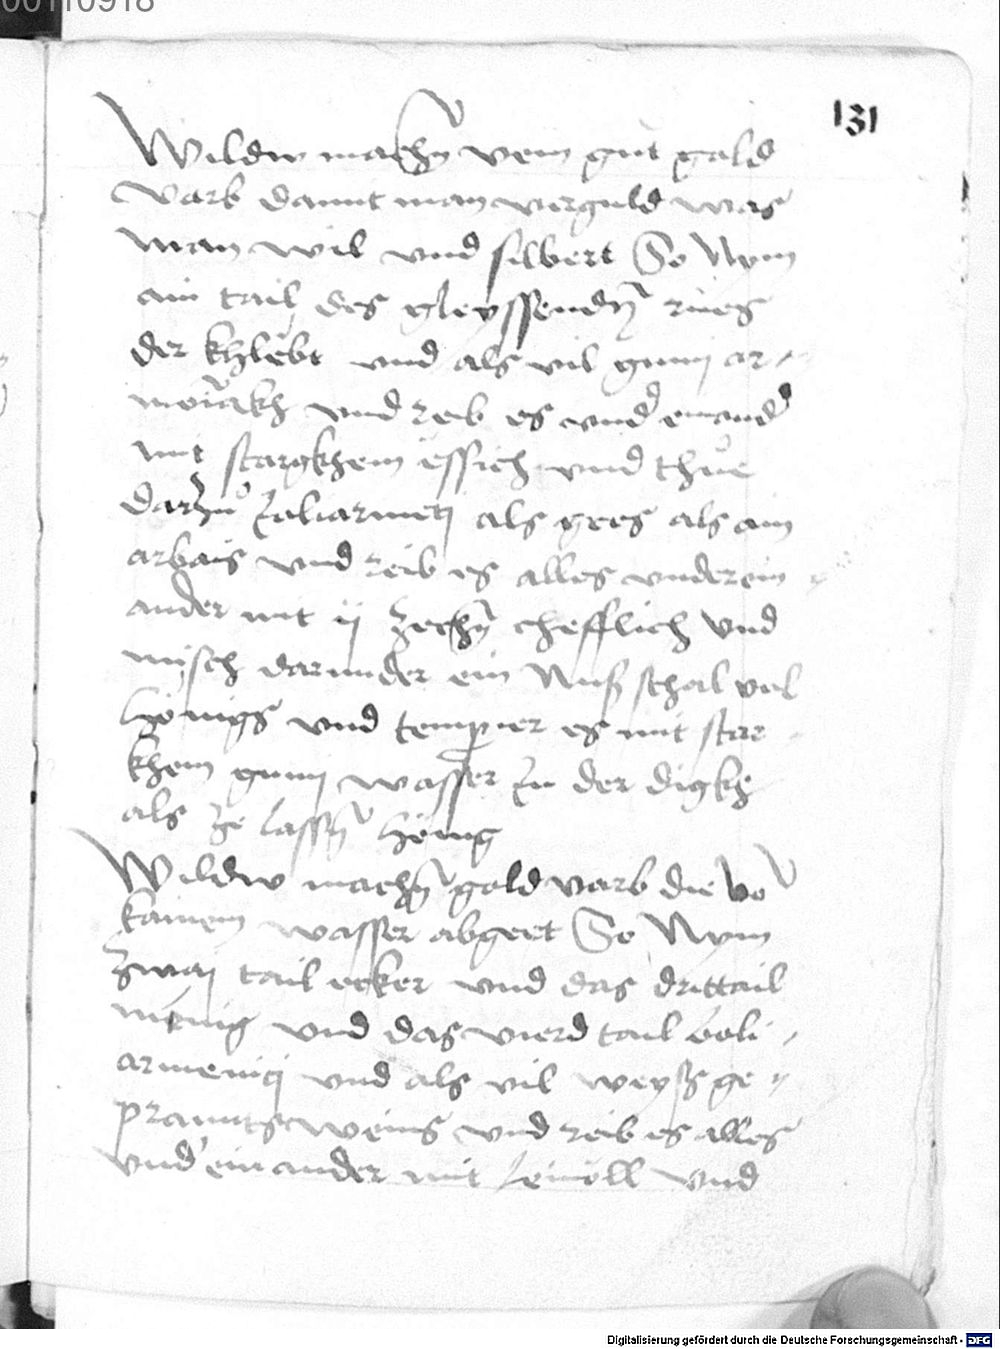 00110918
131
Wildw machn vein gut gold
varb damit man verguld was
man wil vnd silbert So Nym
ain tail des gleyssendn rues
der khlebt vnd als vil gumj ar-
moniakh vnd reib es vnder einand
mit starkhem essich vnd thue
darzu boliarmeti als gros als ain
arbais vnd reib es alles vnderein-
ander mit ij zechn vnd
misch darunder ein Nusschal vol
hönigs vnd tempier es mit star-
khem gumj wasser zu der digkh
als ze lassn hönig
Wildw machn gold varb die vo
kainem wasser abgeet So Nym
zwaj tail ocker vnd das drittail
menig vnd das vierd tail boli-
armenicj vnd als vil weyss ge-
pranntsweins vnd reib es alles
vnd einander mit leinöll vnd
Digitalisierung gefördert durch die Deutsche Forschungsgemeinschaft - DFG